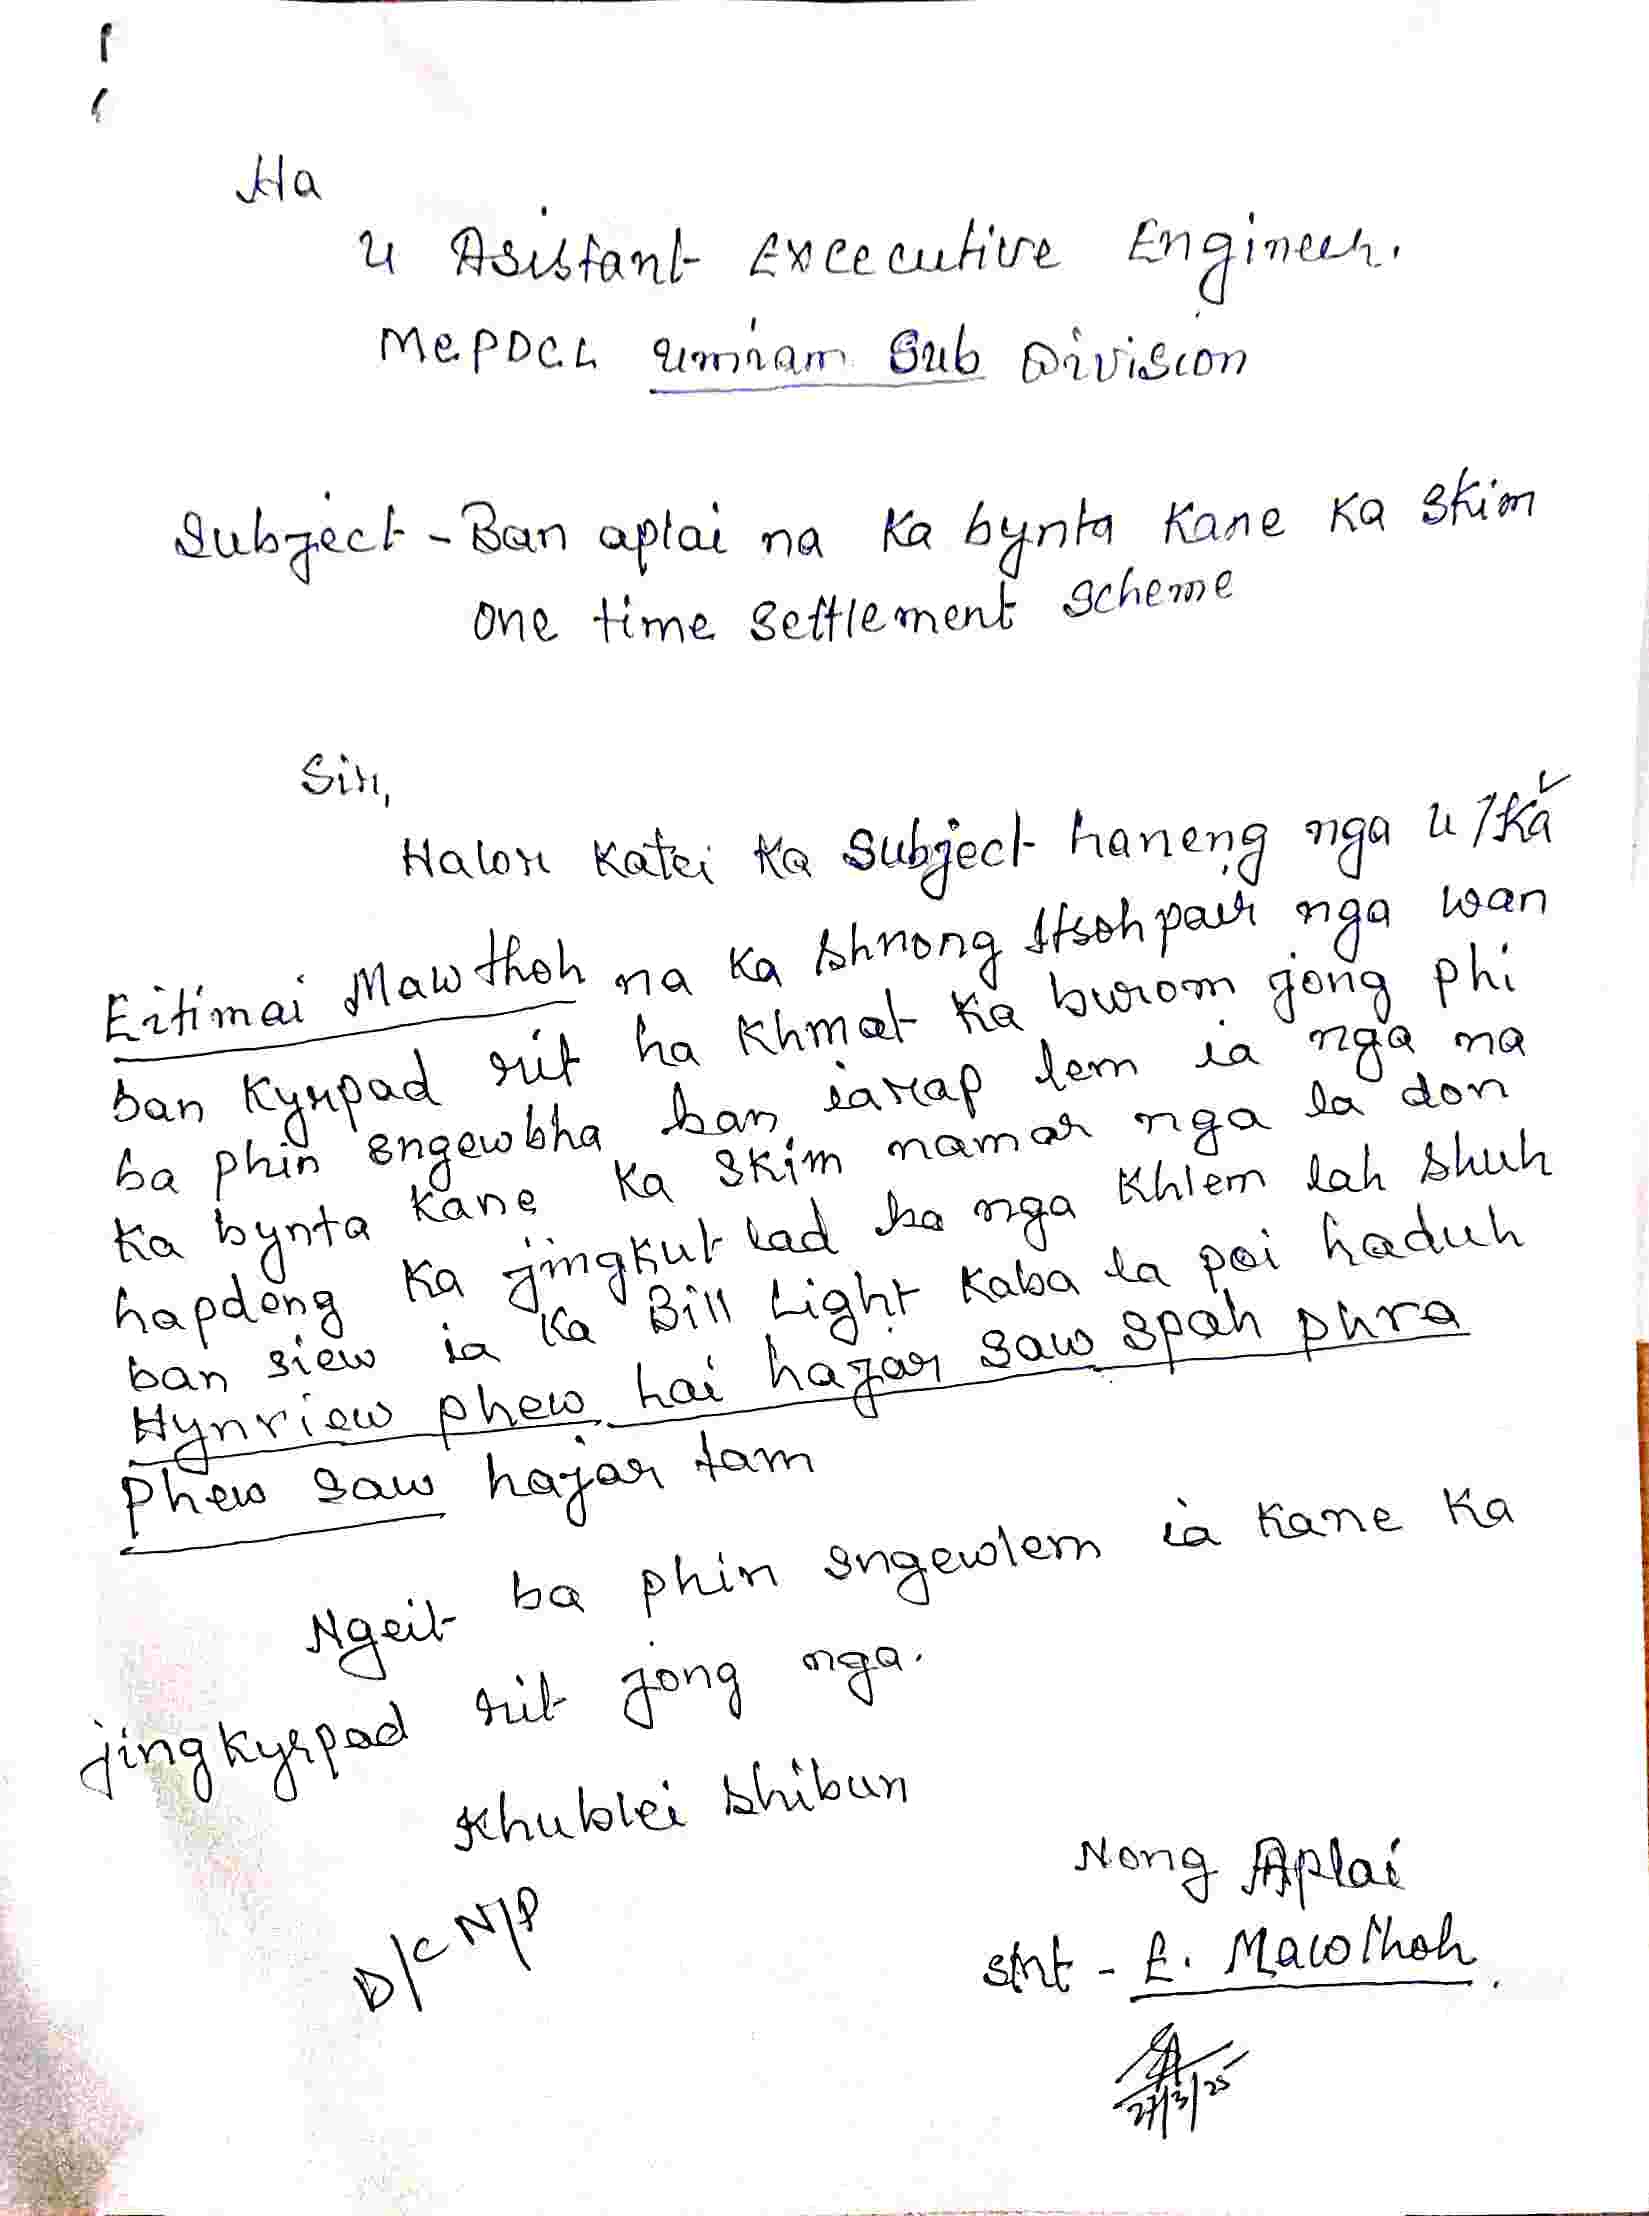 Ha
U Asistant Excecutive Engineer.
MePDCL Umiam Sub Division
Subject - Ban aplai na ka bynta kane ka skim
one time settlement scheme
Sir,
Halor katei ka subject haneng nga u/ka
Eitimai Mawthoh na ka shnong Itsohpair nga wan
ban kyrpad rit ha khmat ka burom jong phi
ba phin sngewbha ban iarap lem ia nga na
ka bynta kane ka skim namar nga la don
hapdeng ka jingkut lad ba nga khlem lah shuh
ban siew ia ka Bill Light kaba la poi haduh
Hynriew phew hai hajar saw spah phra
phew saw hajar tam
Ngeit ba phin sngewlem ia kane ka
jingkyrpad rit jong nga.
Khublei shibun
Nong Aplai
D/C N/P
Smt - E. Mawthoh.
27/3/25